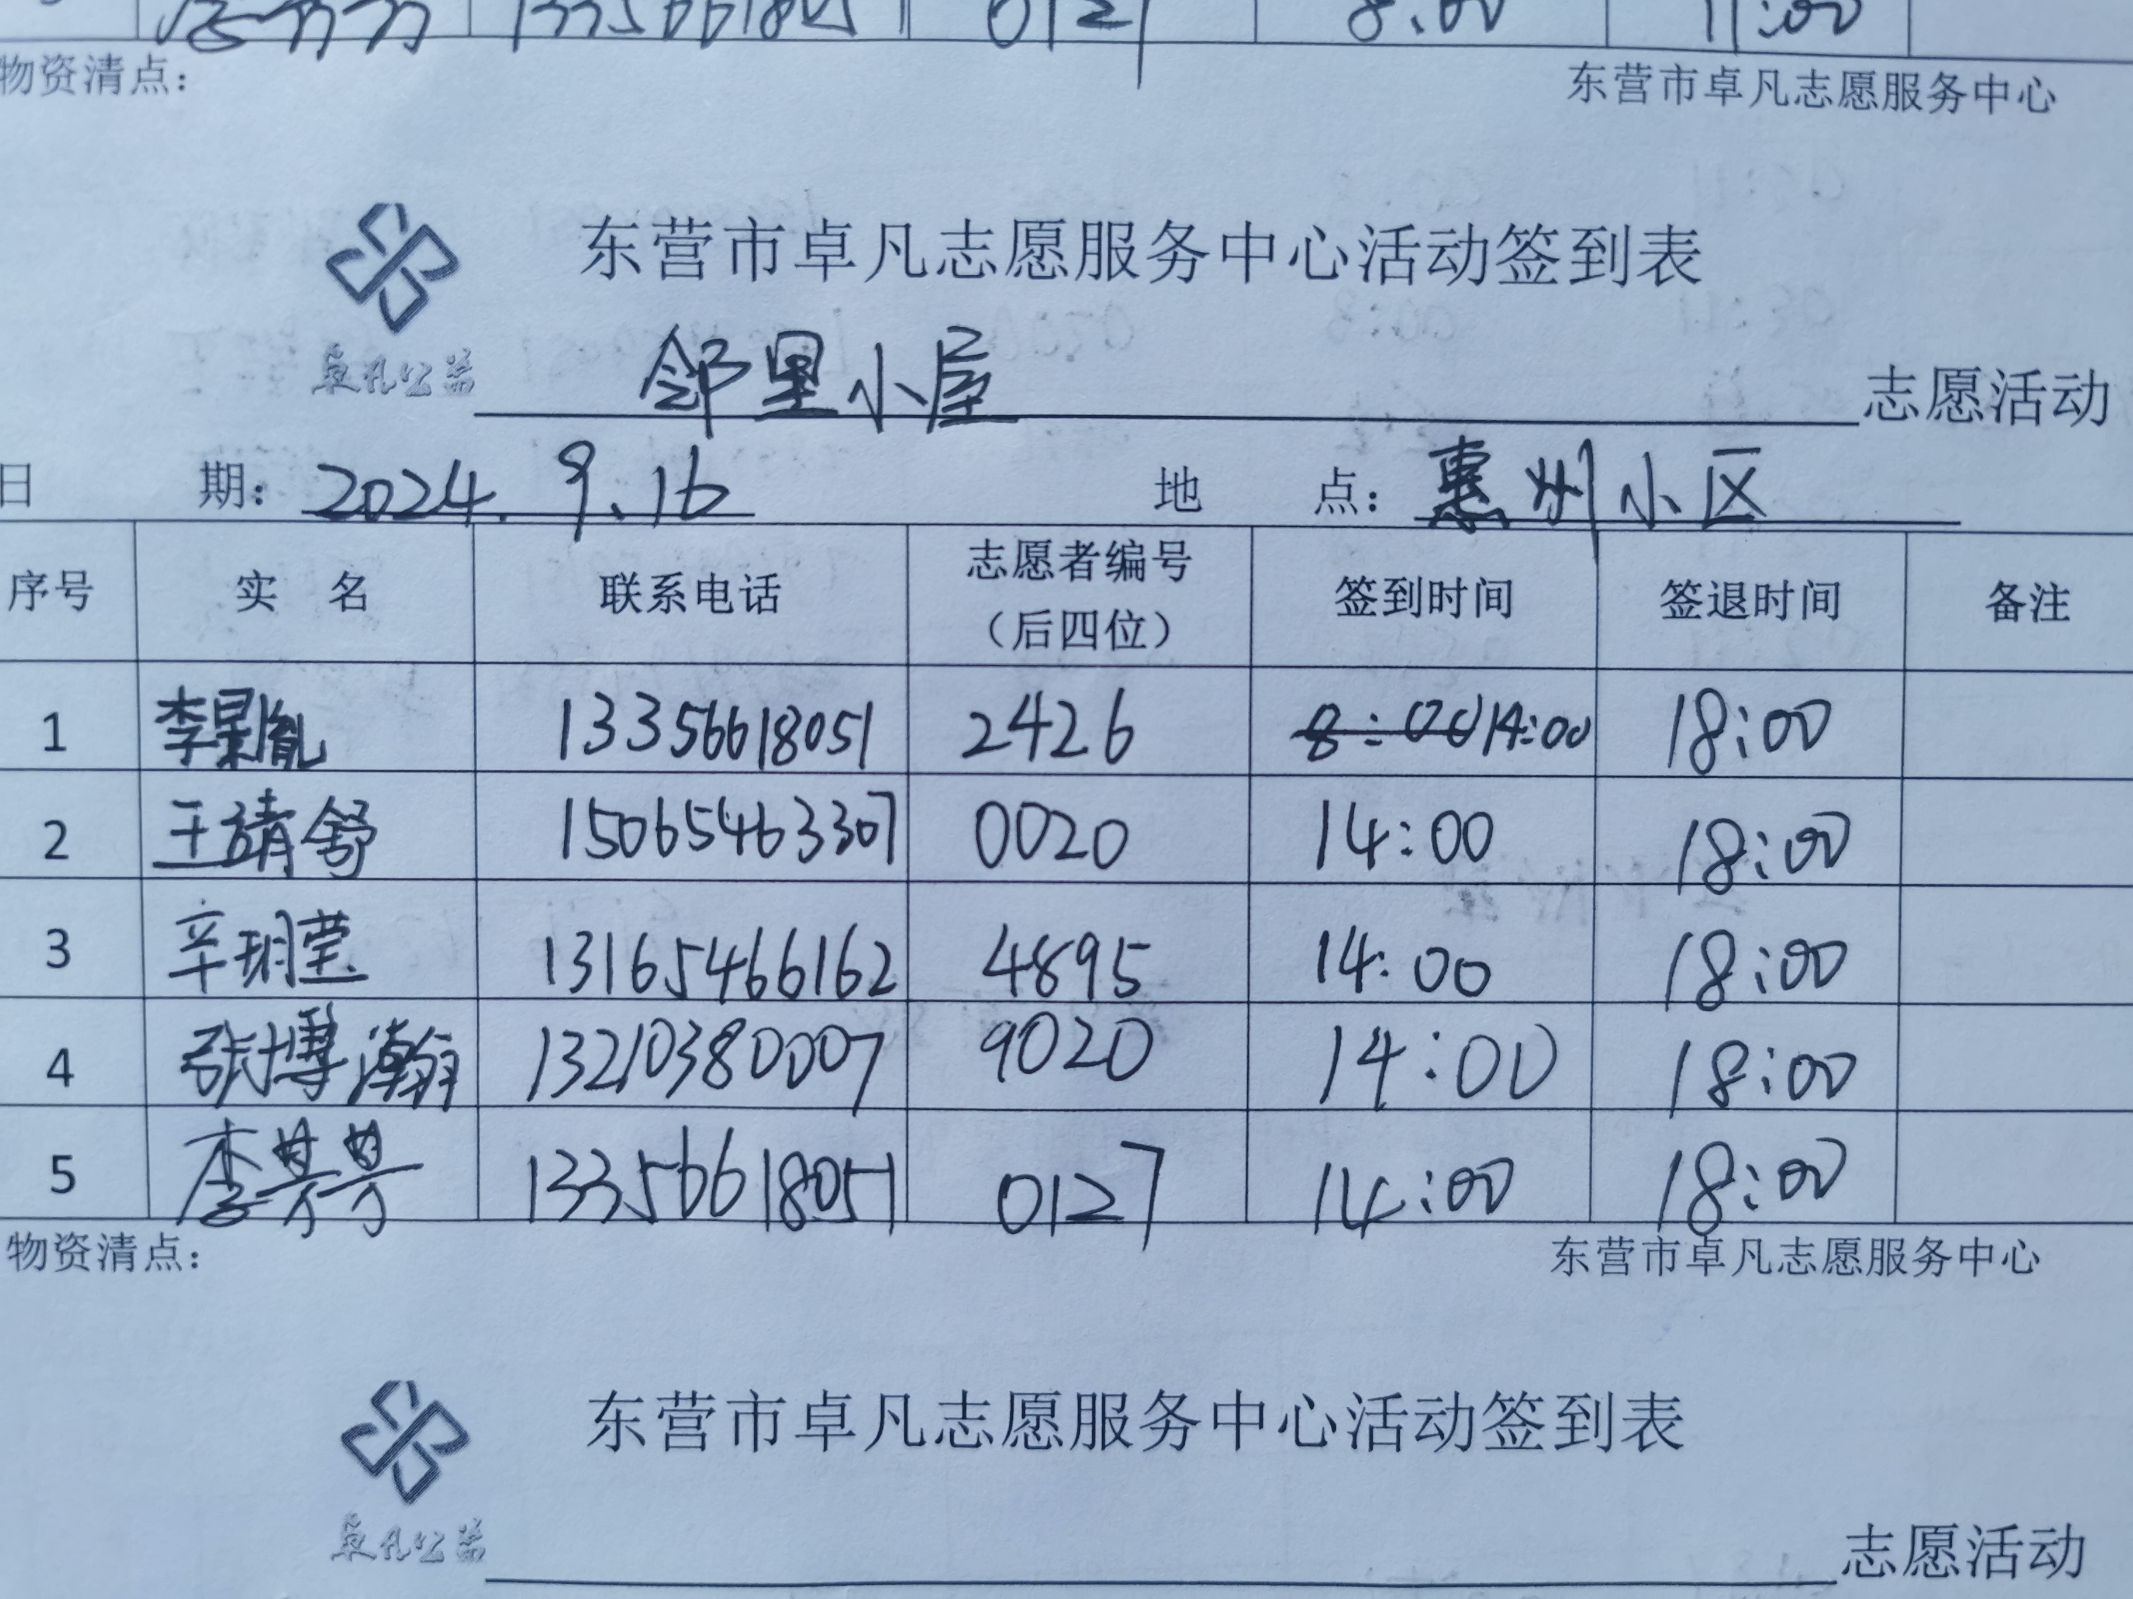 李芳芳 13356618051 0127 8:00 11:00
物资清点： 东营市卓凡志愿服务中心
东营市卓凡志愿服务中心活动签到表
卓凡公益 邻里小屋 志愿活动
日 期：2024.9.16 地 点：惠州小区
序号 实 名 联系电话 志愿者编号（后四位） 签到时间 签退时间 备注
1 李景胤 13356618051 2426 8:00 14:00 18:00
2 王靖舒 15065463307 0020 14:00 18:00
3 辛玥莹 13165466162 4895 14:00 18:00
4 张博瀚 13210380007 9020 14:00 18:00
5 李芳芳 13356618051 0127 14:00 18:00
物资清点： 东营市卓凡志愿服务中心
东营市卓凡志愿服务中心活动签到表
卓凡公益 志愿活动